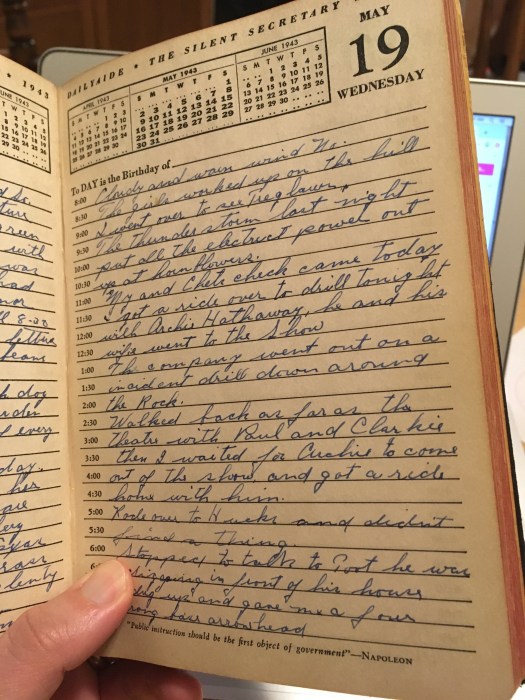 DAILYAIDE • THE SILENT SECRETARY
MAY
19
WEDNESDAY
APRIL 1943
MAY 1943
S M T W T F S
1
2 3 4 5 6 7 8
9 10 11 12 13 14 15
16 17 18 19 20 21 22
23 24 25 26 27 28 29
30 31
JUNE 1943
S M T W T F S
1 2 3 4 5
6 7 8 9 10 11 12
13 14 15 16 17 18 19
20 21 22 23 24 25 26
27 28 29 30
To DAY is the Birthday of
8:00 Cloudy and warm wind No.
8:30 The girls worked up on the hill
9:00 I went over to see
9:30 The thunder storm last night
10:00 put all the electruct power out
10:30 up at hornflowers.
11:00 My and Chete check came today
11:30 I got a ride over to drill tonight
12:00 with Archie Hathaway, he and his
12:30 wife went to the show
1:00 The company went out on a
1:30 incident drill down around
2:00 the Rock.
2:30 Walked back as far as the
3:00 theatre with Paul and Clarkie
3:30 then I waited for Archie to come
4:00 out of the show and got a ride
4:30 home with him.
5:00 Rode over to Hucks and didn't
5:30 find a thing
6:00 stopped to talk to Poot he was
digging in front of his house
dig up and gave me a four
long base arrowhead
"Public instruction should be the first object of government"—NAPOLEON